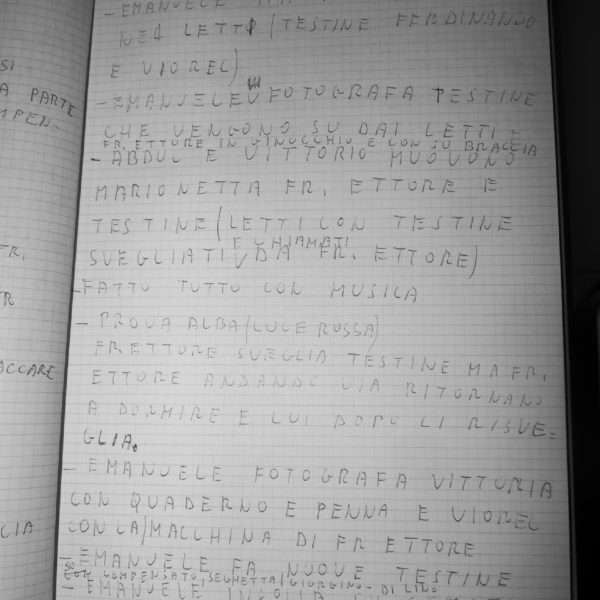 SI
A PARTE
MPEN=
FR.
ACCARE
CIA
- EMANUELE
NEL LETTO (TESTINE FERDINANDO
E VIOREL)
- EMANUELE FOTOGRAFA TESTINE
CHE VENGONO SU DAI LETTI =
FR. ETTORE IN GINOCCHIO E CON SU BRACCIA
- ABDUL E VITTORIO MUOVONO
MARIONETTA FR. ETTORE E
TESTINE (LETTI CON TESTINE
E CHIAMATI
SVEGLIATI DA FR. ETTORE)
- FATTO TUTTO CON MUSICA
- PROVA ALBA (LUCE ROSSA)
FR ETTORE SVEGLIA TESTINE MA FR.
ETTORE ANDANDO VIA RITORNANO
A DORMIRE E LUI DOPO LI RISVE=
GLIA.
- EMANUELE FOTOGRAFA VITTORIA
CON QUADERNO E PENNA E VIOREL
CON LA MACCHINA DI FR ETTORE
- EMANUELE FA NUOVE TESTINE
CON COMPENSATO, SEGHETTA (GIORGINO - DI LINO
- EMANUELE